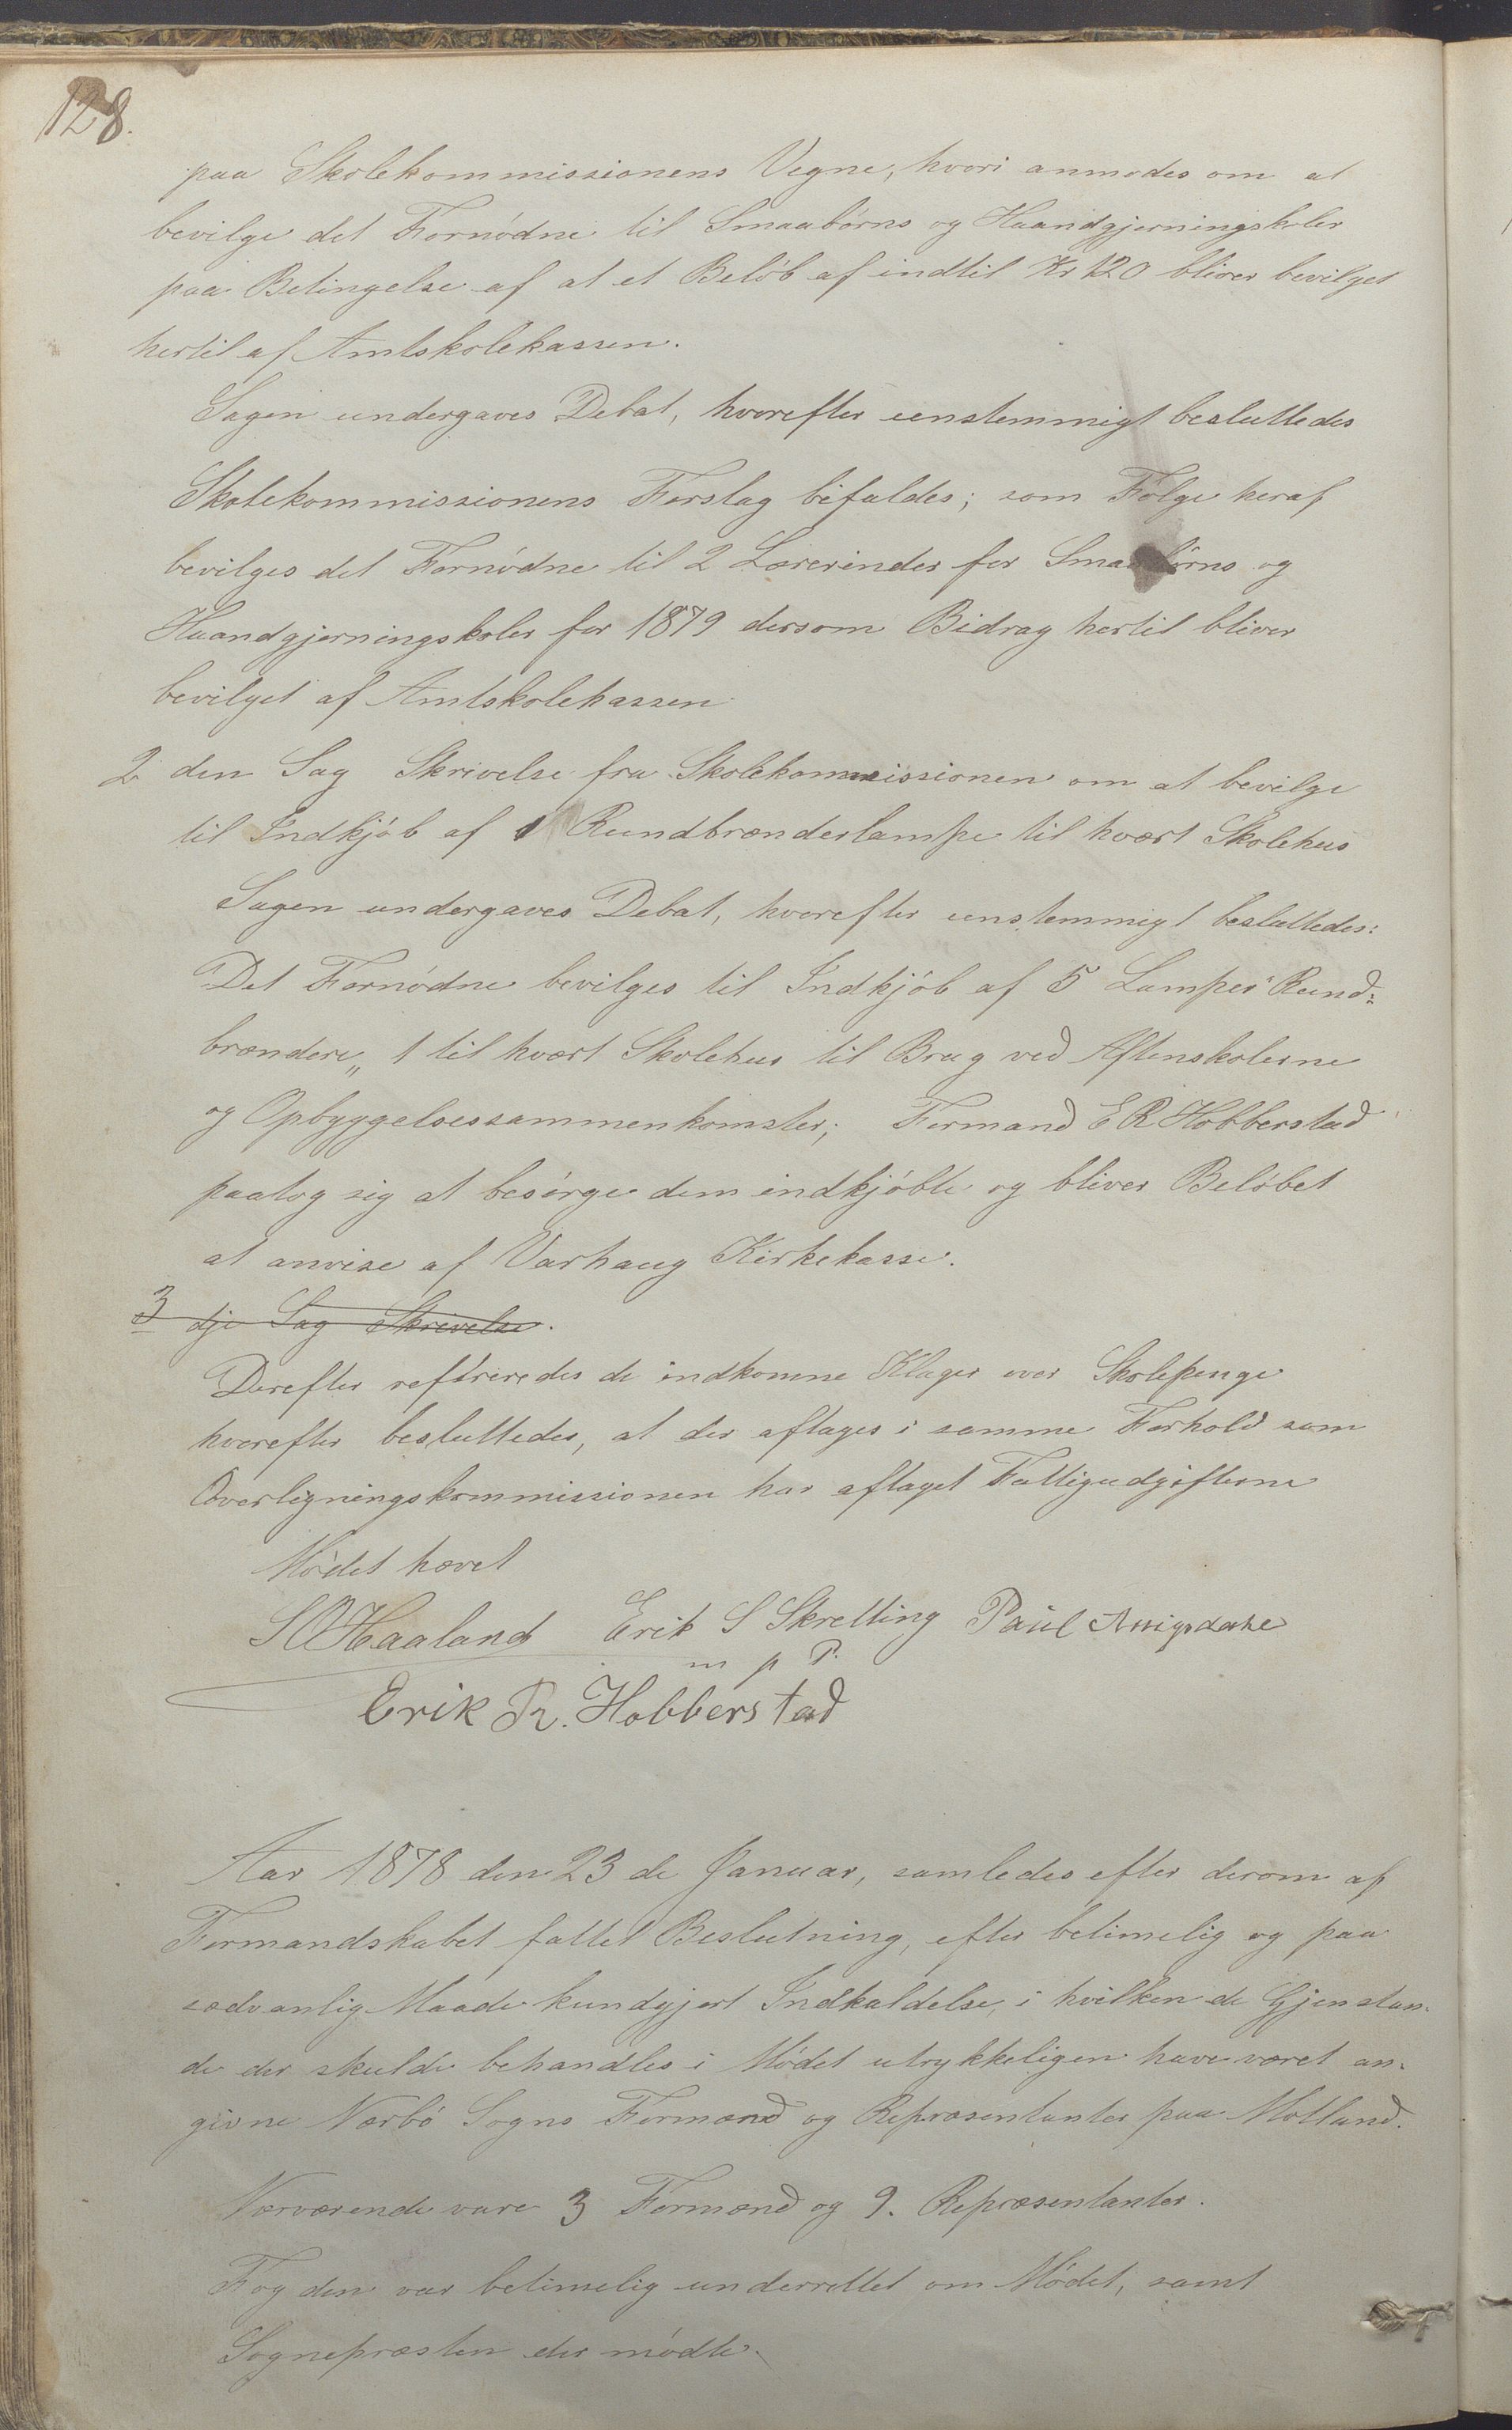 128.
paa Skolekommissionens Vegne, hvori anmodes om at
bevilge det Fornödne til Smaabörns og Haandgjerningskoler
paa Betingelse af at et Belöb af indtil Kr 120 bliver bevilget
hertil af Amtskolekassen.
Sagen undergaves Debat, hvorefter eenstemmigt besluttedes
Skolekommissionens Forslag bifaldes; som Fölge heraf
bevilges det Fornödne til 2 Lærerinder for Smaabörns og
Haandgjerningskoler for 1879 dersom Bidrag hertil bliver
bevilget af Amtskolekassen
2 den Sag Skrivelse fra Skolekommissionen om at bevilge
til Indkjöb af 1 Rundbrænderlampe til hvært Skolehus
Sagen undergaves Debat, hvorefter eenstemmigt besluttedes:
Det Fornödne bevilges til Indkjöb af 5 Lamper "Rund=
brændere„ 1 til hvært Skolehus til Brug ved Aftenskolerne
og Opbyggelsessammenkomster; Formand E R Hobberstad
paatog sig at besörge dem indkjöbte og bliver Belöbet
at anvise af Varhaug Kirkekasse.
3 dje Sag Skrivelse.
Derefter refereredes de indkomne Klager over Skolepenge
hvorefter besluttedes, at der aftages i samme Forhold som
Overligningskommissionen har aftaget Fattigudgifterne
Mödet hævet
S O Haaland Erik S Skretting Paul
m p P.
Erik R. Hobberstad
Aar 1878 den 23 de Januar, samledes efter derom af
Formandskabet fattet Beslutning, efter betimelig og paa
sædvanlig Maade kundgjort Indkaldelse, i hvilken de Gjenstan-
de der skulde behandles i Mödet utrykkeligen have været an-
givne Nærbö Sogns Formænd og Repræsentanter paa Motland.
Nærværende vare 3 Formænd og 9. Repræsentanter.
Fogden var betimelig underrettet om Mödet, samt
Sognepræsten der mödte.